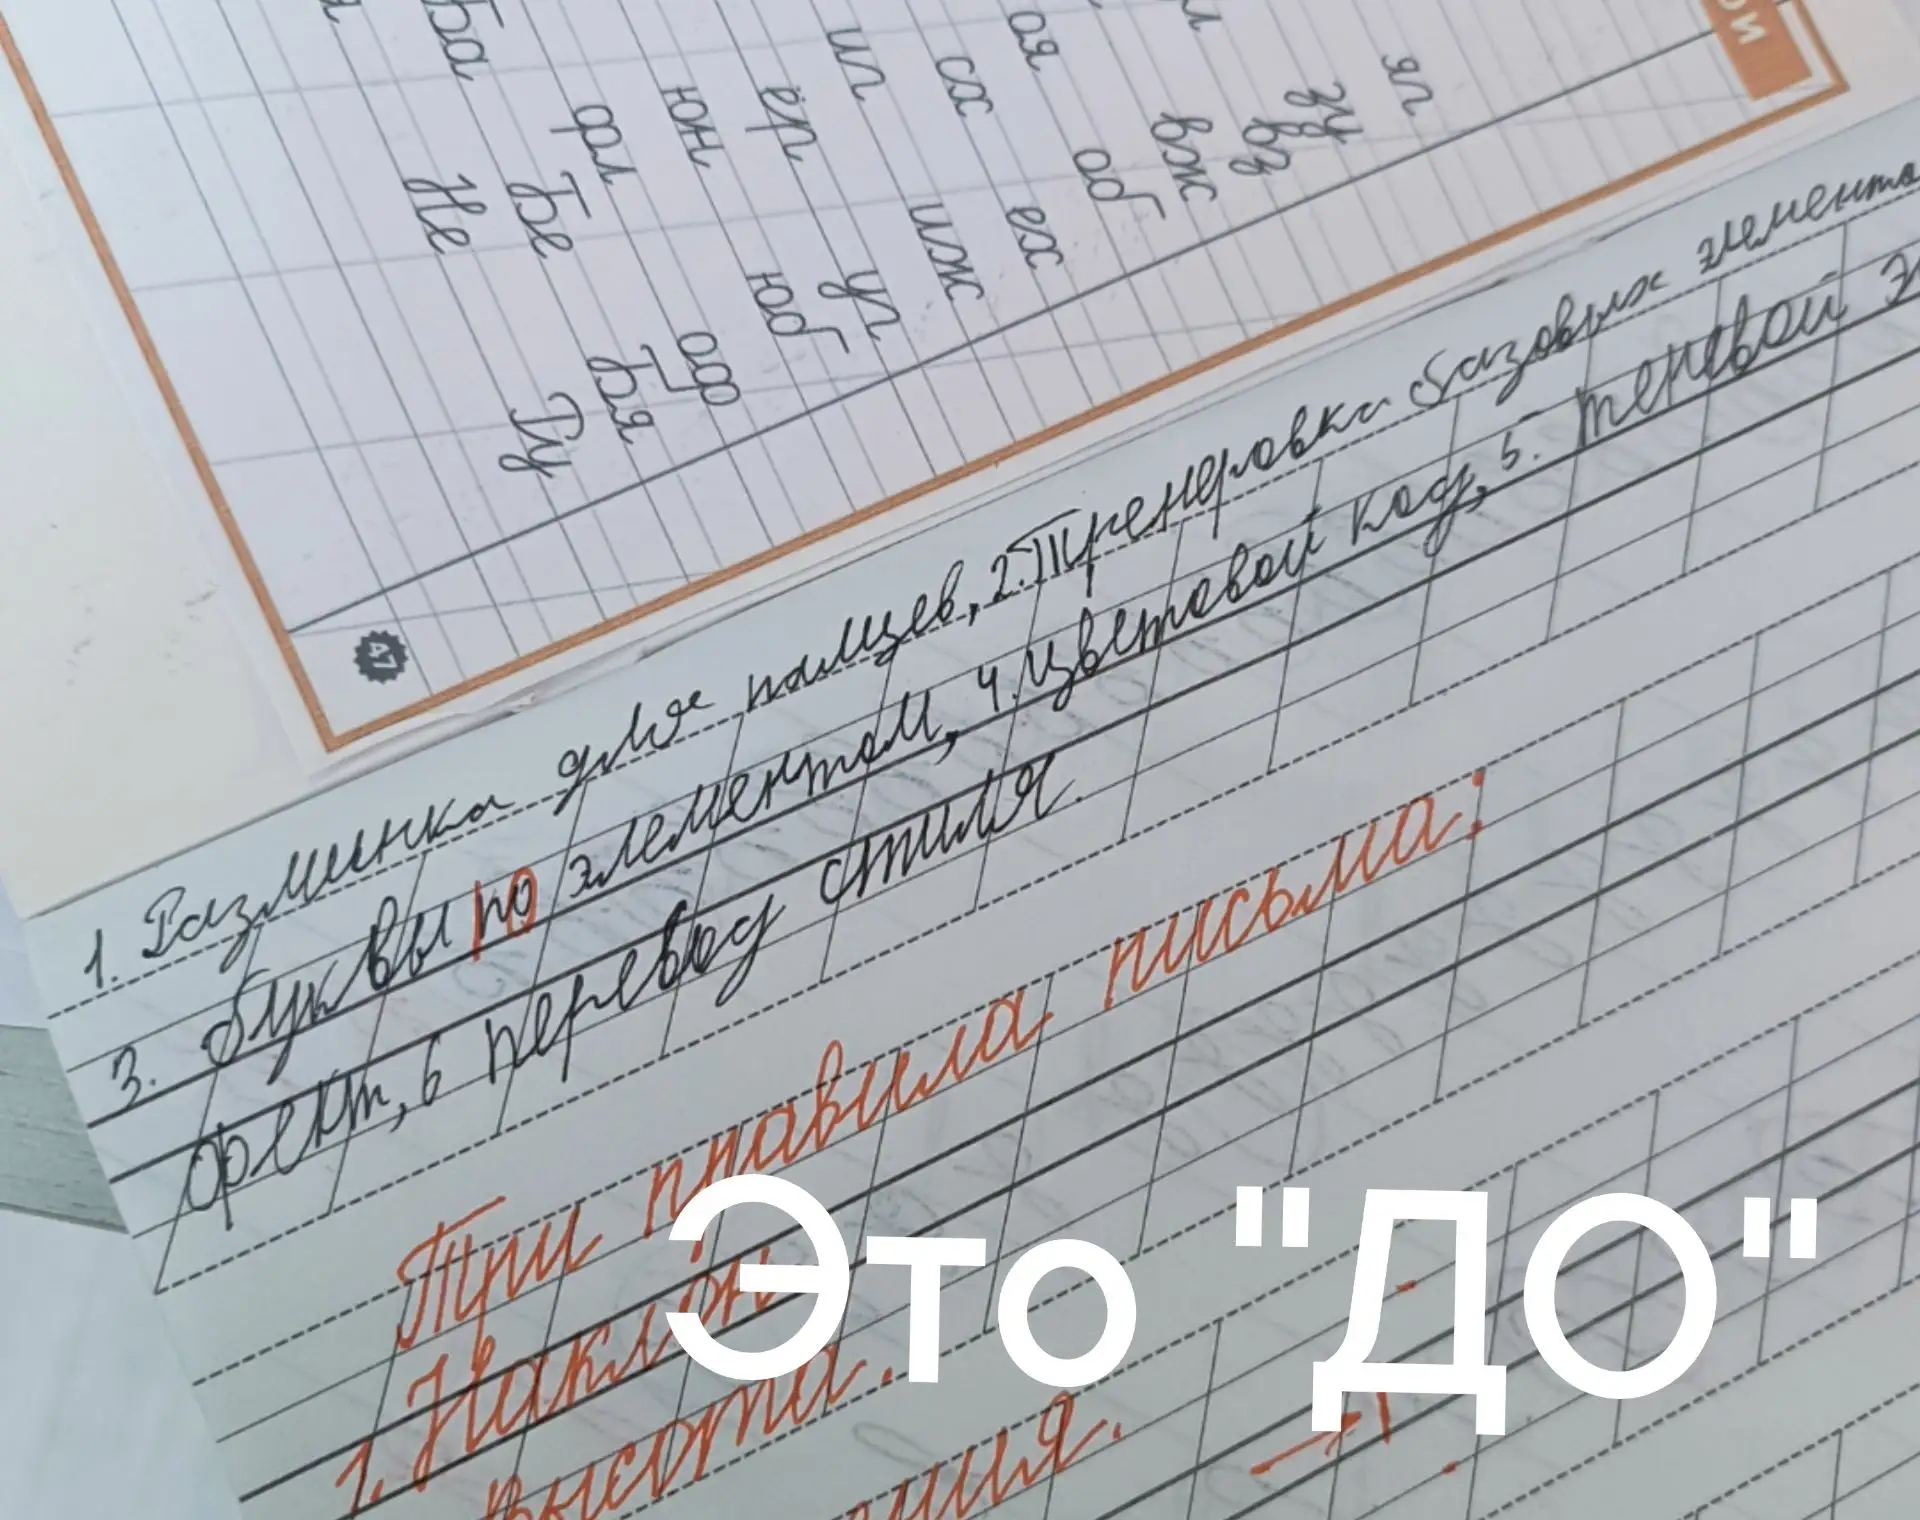 ой
яг
зу
вз
вж
об
ая
сх
ех
иг
иж
ёр
уг
юн
юб
фл
аф
Ба
Бе
Бя
Не
Ту
47
1. Разминка для пальцев, 2. Тренировка базовых элементо
3. буквы по элементам, 4. цветовой код, 5. теневой э
фект, 6 перевод стиля.
Три правила письма:
1. Наклон
высота.
ния.
Это "ДО"